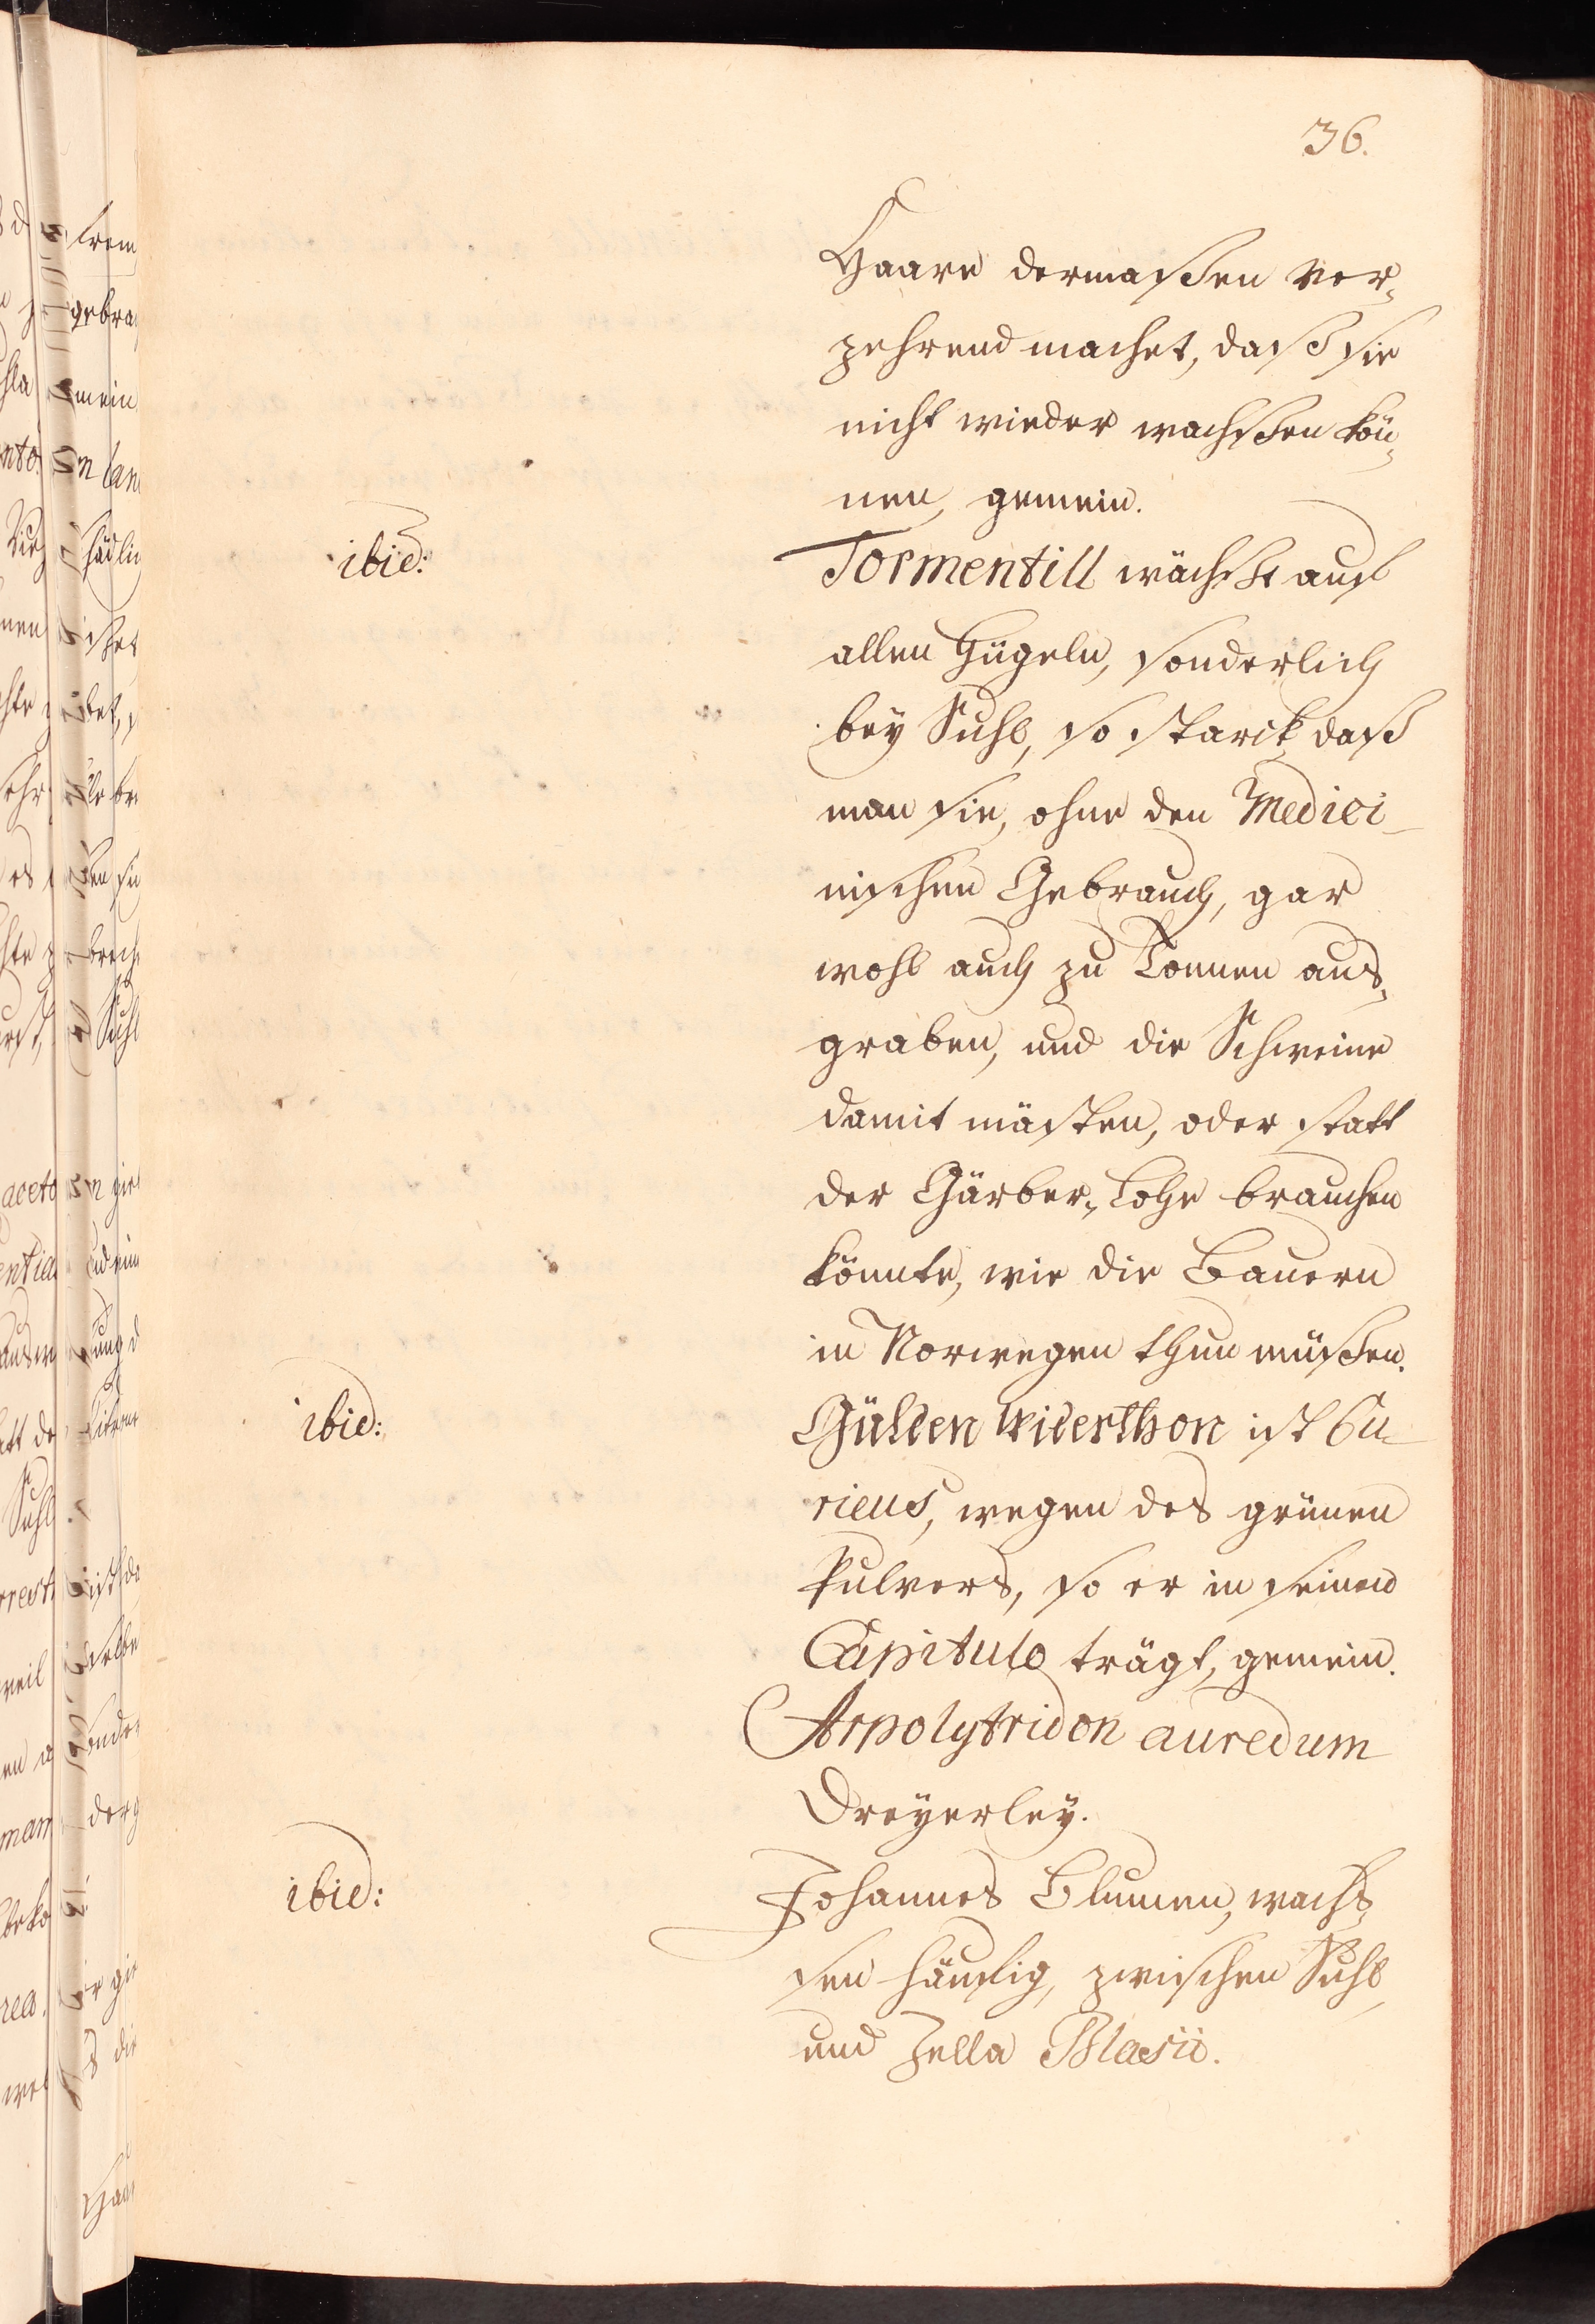 36.
Haare dermaßen ver-
zehrend machet, daß sie
nicht wieder wachßen kön-
nen, gemein.
ibid:
Tormentill wächst auf
allen Hügeln, sonderlich
bey Suhl, so starck, daß
man sie, ohne den Medici-
nischen Gebrauch, gar
wohl auch zu Tonnen aus-
graben, und die Schweine
damit mästen, oder statt
der Gärber-Lohe brauchen
könnte, wie die Bauern
in Norwegen thun müßen.
ibid:
Gülden Widerthon ist Cu-
rieus, wegen des grünen
Pulvers, so er in seinem
Capitulo trägt, gemein.
Arpolytridon auredum
Dreyerley.
ibid:
Johannes Blumen, wach-
sen häuffig, zwischen Suhl
und Zella Blasii.